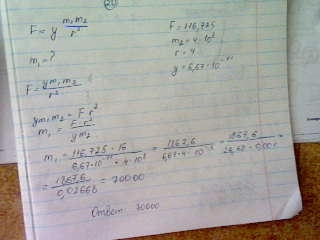 20
F = y m₁m₂ / r²
F = 116,725
m₁ = ?
m₂ = 4 · 10⁸
r = 4
y = 6,67 · 10⁻¹¹
F = y m₁ m₂ / r²
y m₁ m₂ = F r²
m₁ = F · r² / y m₂
m₁ = 116,725 · 16 / 6,67 · 10⁻¹¹ · 4 · 10⁸ = 1867,6 / 6,67 · 4 · 10⁻³ = 1867,6 / 26,68 · 0,001 =
= 1867,6 / 0,02668 = 70000
Ответ: 70000